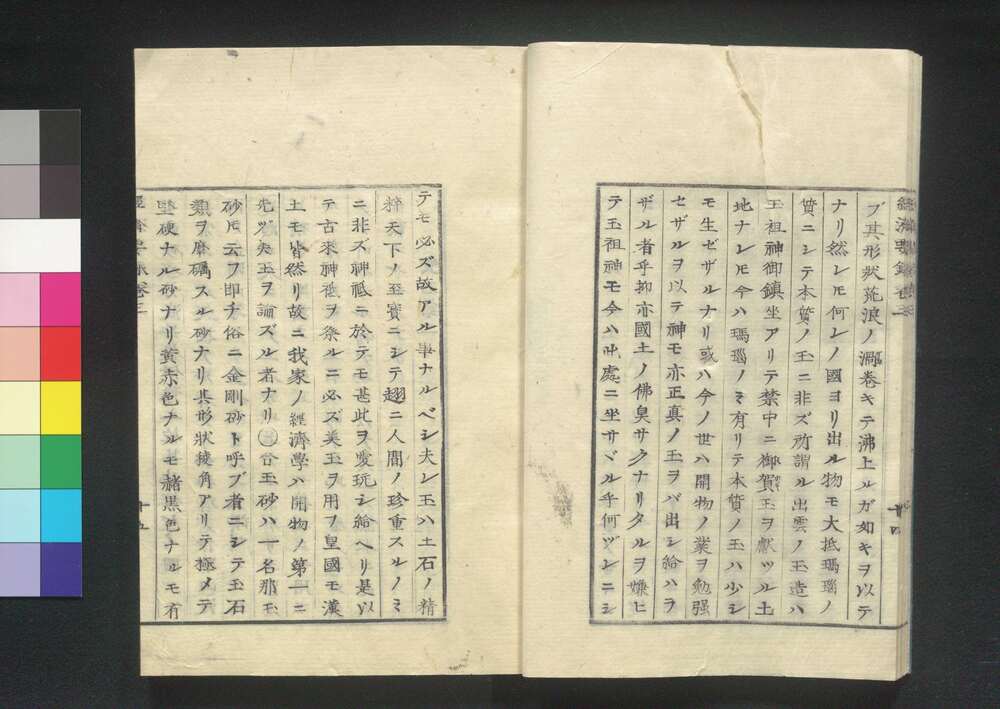 ブ其形状荒浪ノ渦巻キテ沸上ルガ如キヲ以テ
ナリ然レ𪜈何レノ國ヨリ出ル物モ大抵瑪瑙ノ
質ニシテ本質ノ玉ニ非ズ所謂ル出雲ノ玉造ハ
玉祖神御鎮坐アリテ禁中ニ御賀玉ヲ獻ツル土
地ナレ𪜈今ハ瑪瑙ノミ有リテ本質ノ玉ハ少シ
モ生ゼザルナリ或ハ今ノ世ハ開物ノ業ヲ勉强
セザルヲ以テ神モ亦正真ノ玉ヲバ出シ給ハラ
ザル者乎抑亦國土ノ佛臭サクナリタルヲ嫌ヒ
テ玉祖神モ今ハ此處ニ坐サヾル乎何ヅレニシ
十四
テモ必ズ故アル事ナルベシ夫レ玉ハ土石ノ精
粹天下ノ至寳ニシテ翅ニ人間ノ珍重スルノミ
ニ非ズ神祇ニ於テモ甚此ヲ愛玩シ給ヘリ是以
テ古來神祇ヲ祭ルニ必ズ美玉ヲ用フ皇國モ漢
土モ皆然リ故ニ我家ノ經濟學ハ開物ノ第一ニ
先ヅ夫玉ヲ論ズル者ナリ○二合玉砂ハ一名那玉
砂𪜈云フ即チ俗ニ金剛砂ト呼ブ者ニシテ玉石
類ヲ磨礪スル砂ナリ其形狀稜角アリテ極メテ
堅硬ナル砂ナリ黄赤色ナルモ赭黒色ナルモ有
十五